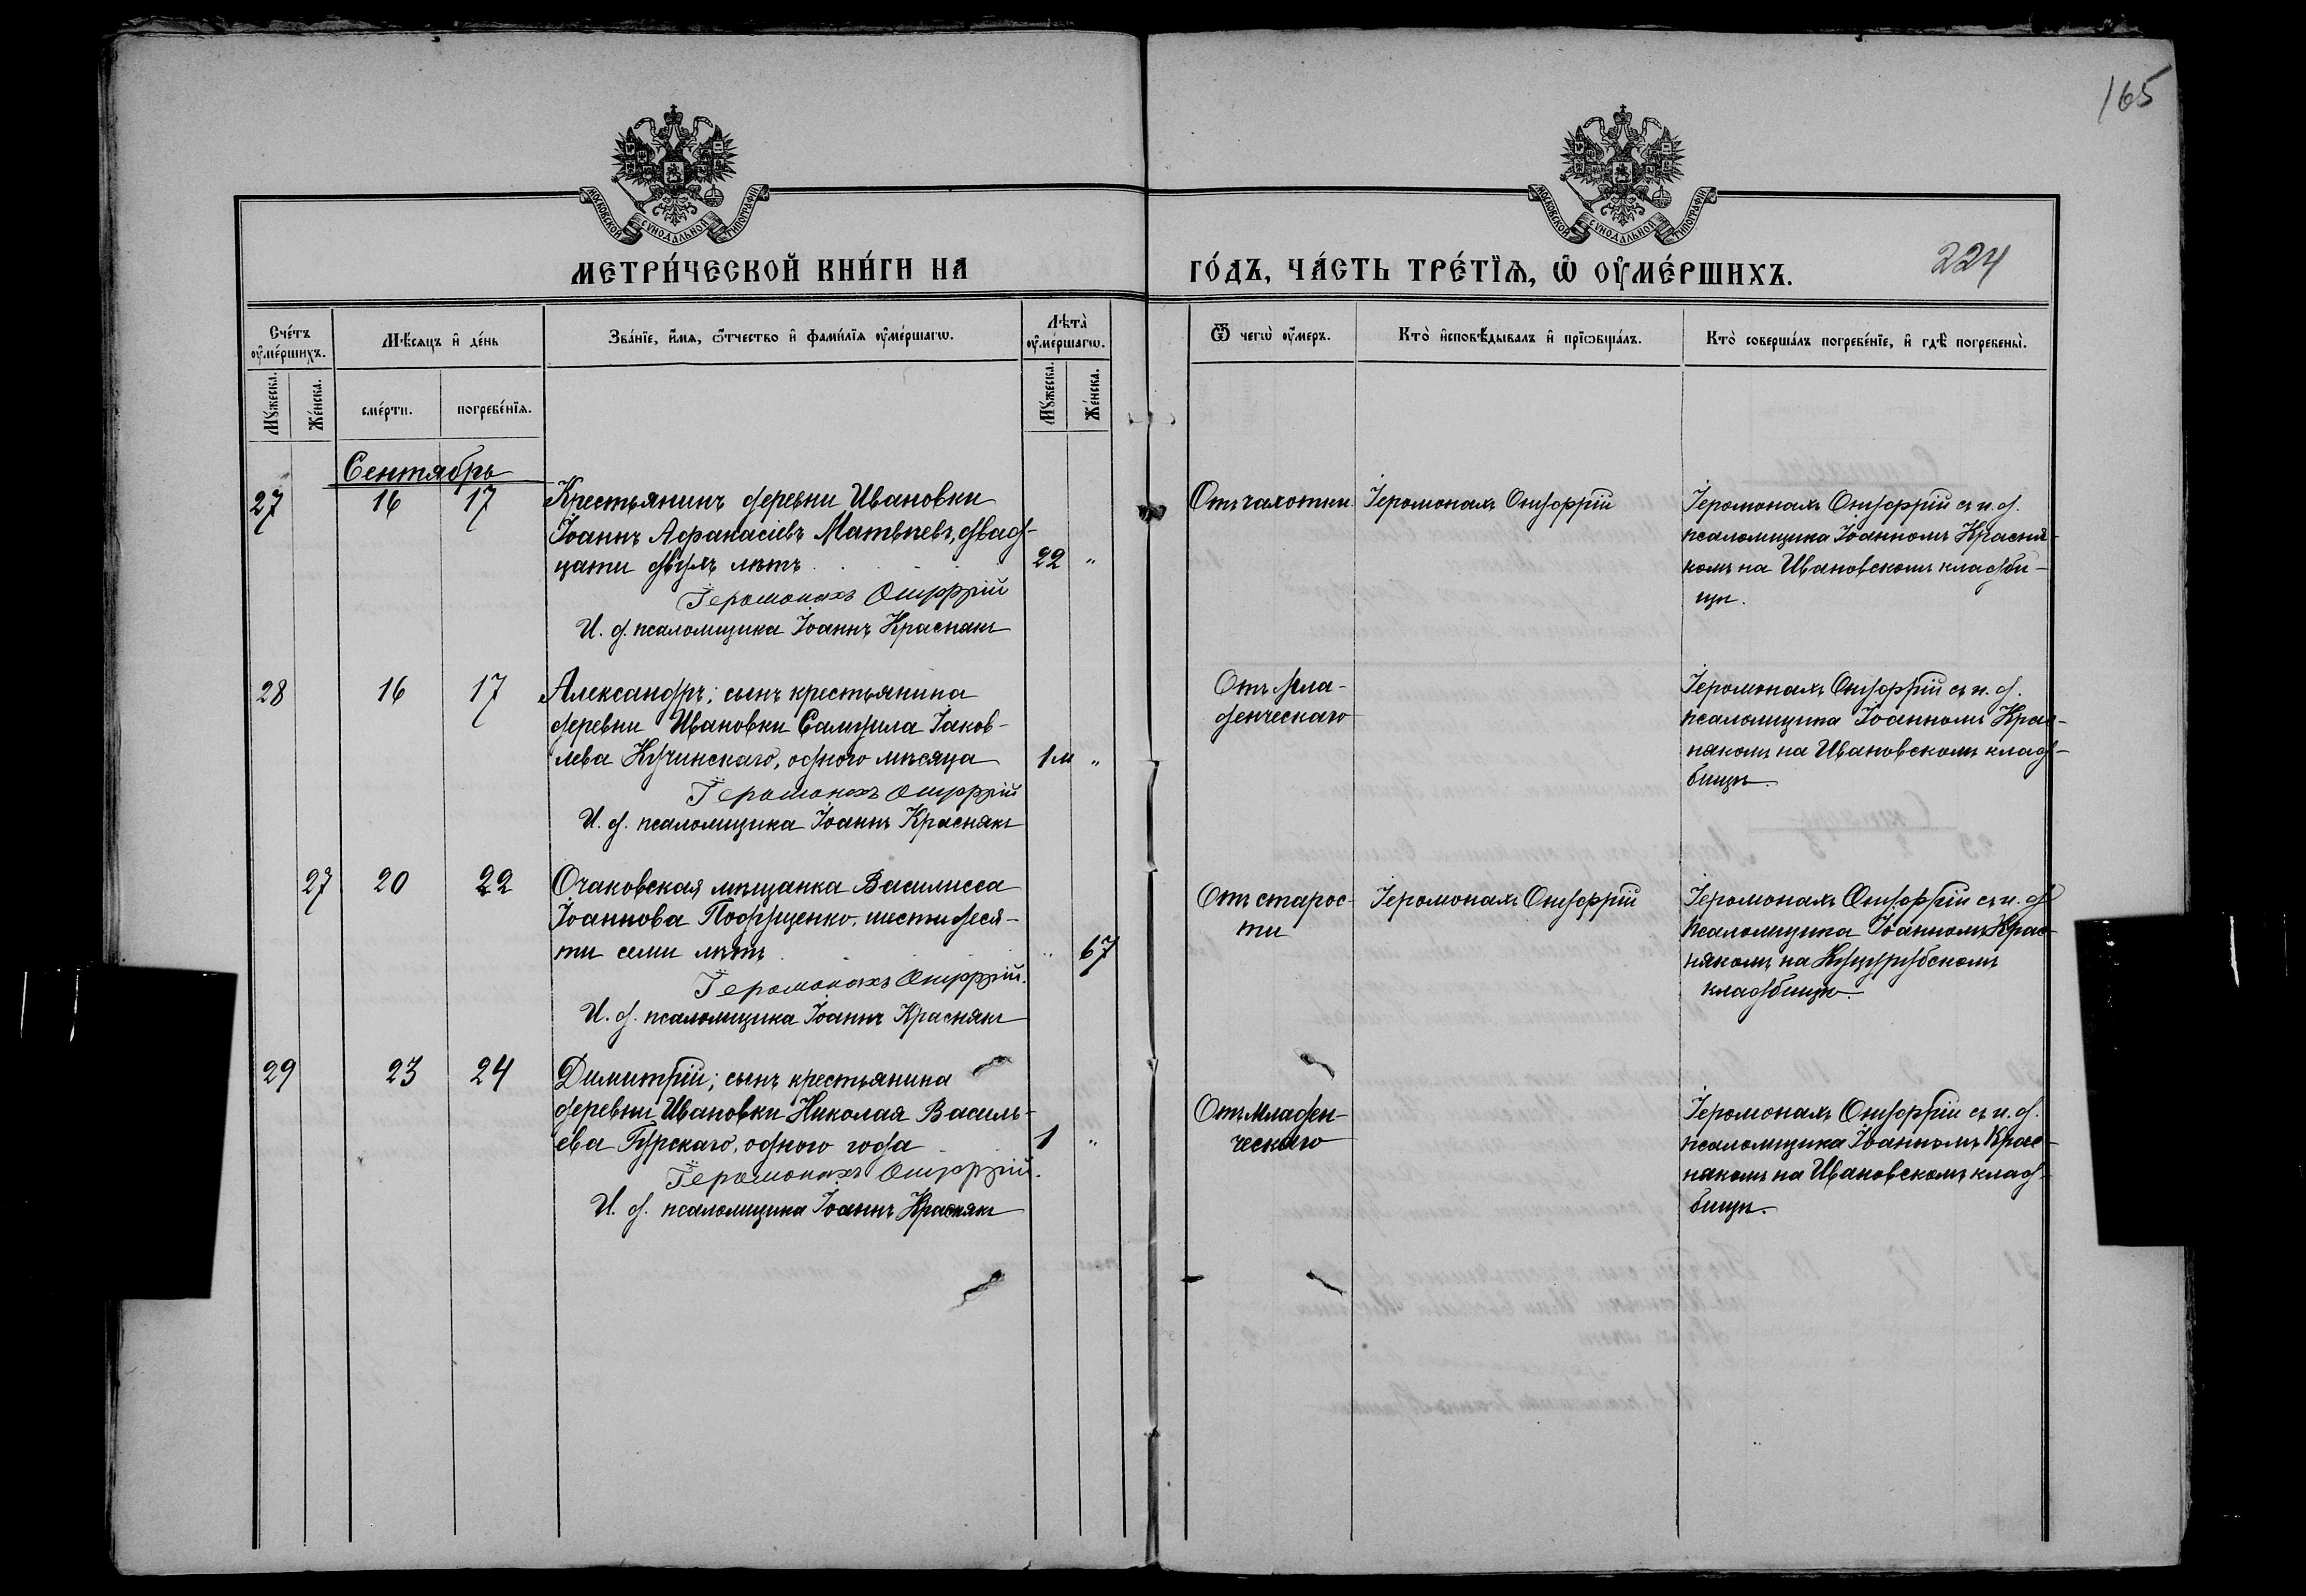 165
МОСКОВСКОЙ СѴНОДАЛЬНОЙ ТИПОГРАФІИ
МОСКОВСКОЙ СѴНОДАЛЬНОЙ ТИПОГРАФІИ
МЕТРИ́ЧЕСКОЙ КНИ́ГИ НА
ГО́ДЪ, ЧА́СТЬ ТРЕ́ТЇѦ, Ѡ҆ ОУ҆МЕ́РШИХЪ.
224
Сче́тъ оу҆ме́ршихъ.
Мѣ́сяцъ и҆ де́нь
Зва́нїе, и҆́мѧ, ѻ҆́тчество и҆ фами́лїѧ оу҆ме́ршагѡ.
Лѣта̀ оу҆ме́ршагѡ.
Ѿ чегѡ̀ оу҆́меръ.
Кто̀ и҆сповѣ́дывалъ и҆ прїѡбща́лъ.
Кто̀ соверша́лъ погребе́нїе, и҆ гдѣ̀ погребены̀.
Мꙋ́жеска.
Же́нска.
сме́рти.
погребе́нїѧ.
Мꙋ́жеска.
Же́нска.
Сентябрь
27 16 17 Крестьянинъ деревни Ивановки
Іоаннъ Афанасіевъ Матвѣевъ, двад-
цати двухъ лѣтъ 22 "
Іеромонахъ Онуфрій
И. д. псаломщика Іоаннъ Краснякъ
Отъ чахотки
Іеромонахъ Онуфрій
Іеромонахъ Онуфрій съ и. д.
псаломщика Іоанномъ Красня-
комъ на Ивановскомъ кладби-
щѣ.
28 16 17 Александръ; сынъ крестьянина
деревни Ивановки Самуила Іаков-
лева Кучинскаго, одного мѣсяца 1 м "
Іеромонахъ Онуфрій
И. д. псаломщика Іоаннъ Краснякъ
Отъ мла-
денческаго
Іеромонахъ Онуфрій съ и. д.
псаломщика Іоанномъ Крас-
някомъ на Ивановскомъ клад-
бищѣ.
27 20 22 Очаковская мѣщанка Василисса
Іоаннова Подрущенко, шестидеся-
ти семи лѣтъ " 67
Іеромонахъ Онуфрій.
И. д. псаломщика Іоаннъ Краснякъ
Отъ старос-
ти
Іеромонахъ Онуфрій
Іеромонахъ Онуфрій съ и. д.
псаломщика Іоанномъ Крас-
някомъ на Куцурубскомъ
кладбищѣ.
29 23 24 Димитрій; сынъ крестьянина
деревни Ивановки Николая Василь-
ева Гурскаго, одного года 1 "
Іеромонахъ Онуфрій.
И. д. псаломщика Іоаннъ Краснякъ
Отъ младен-
ческаго
Іеромонахъ Онуфрій съ и. д.
псаломщика Іоанномъ Крас-
някомъ на Ивановскомъ клад-
бищѣ.